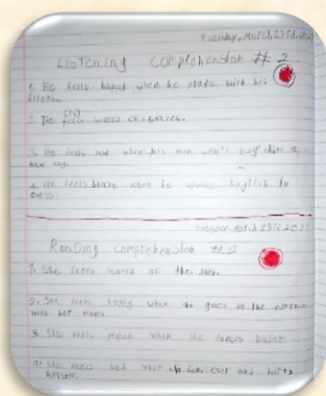 Tuesday, March, 23rd, 2021
Listening comprehension # 2
1. He feels happy when he plays with his
2. He (is) feels scared of
3. He feels sad when his mom won't buy him a
new toy.
4. He feels brave when he speaks English in
class
Tuesday, March 23rd, 2021
Reading comprehension # 2
1. She feels scared of the dark.
2. She feels happy when she goes to the cinema
with her mom.
3. She feels proud when she dances ballet
4. She feels sad when she falls over and hurts
herself.